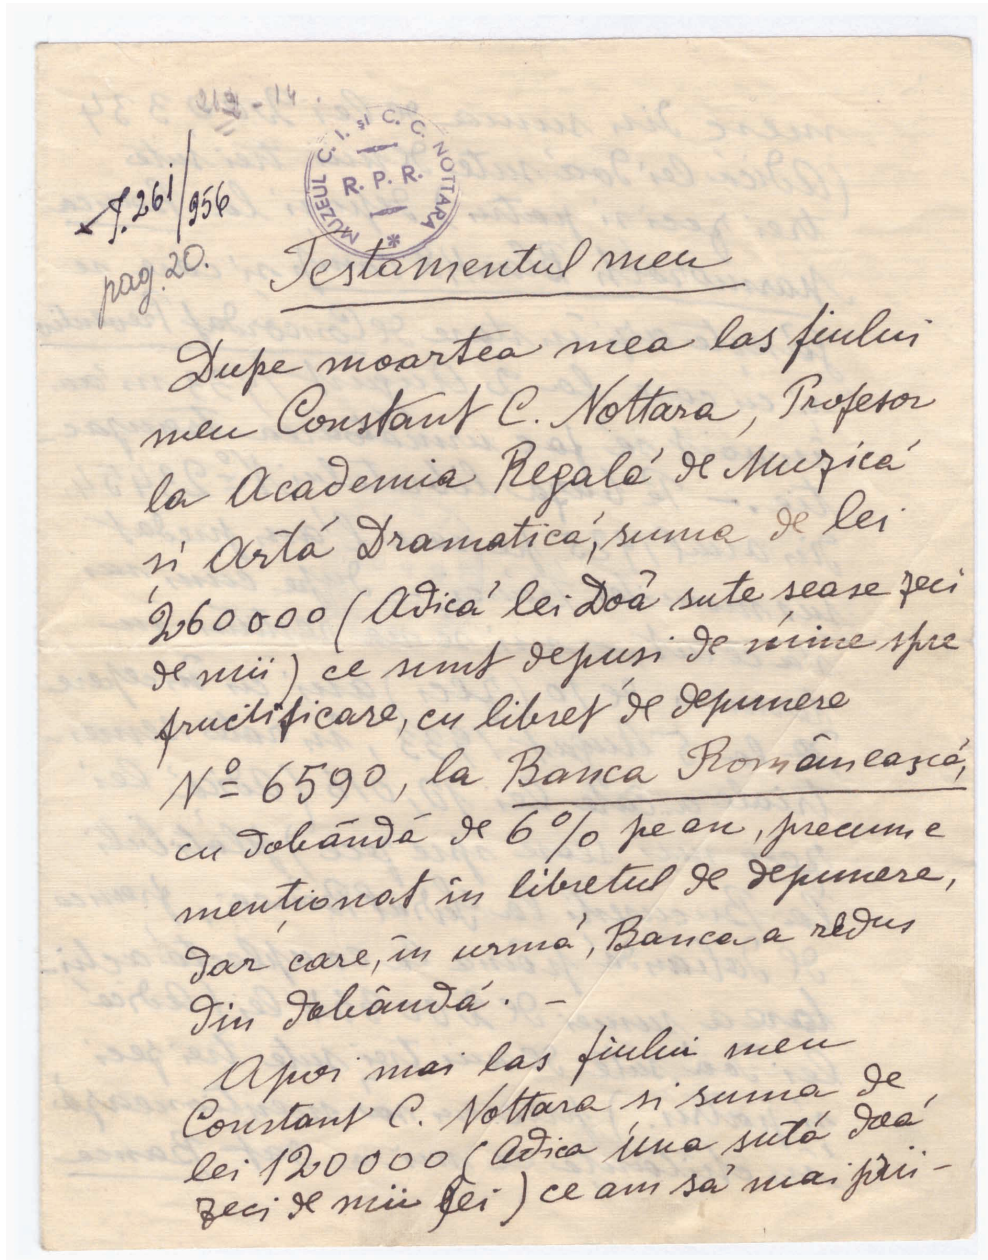 212 - 14
MUZEUL C. I. și C. C. NOTTARA
R. P. R.
J. 261/956
pag. 20.
Testamentul meu
Dupe moartea mea las fiului
meu Constant C. Nottara, Profesor
la Academia Regală de Muzică
și Artă Dramatică, suma de lei
260000 (Adică lei Doă sute sease zeci
de mii) ce sunt depuși de mine spre
fructificare, cu libret de depunere
Nº 6590, la Banca Românească,
cu dobândă de 6% pe an, precum e
menționat în libretul de depunere,
dar care, în urmă, Banca a redus
din dobândă. –
Apoi mai las fiului meu
Constant C. Nottara și suma de
lei 120000 (Adica una sută doă
zeci de mii lei) ce am să mai pri-